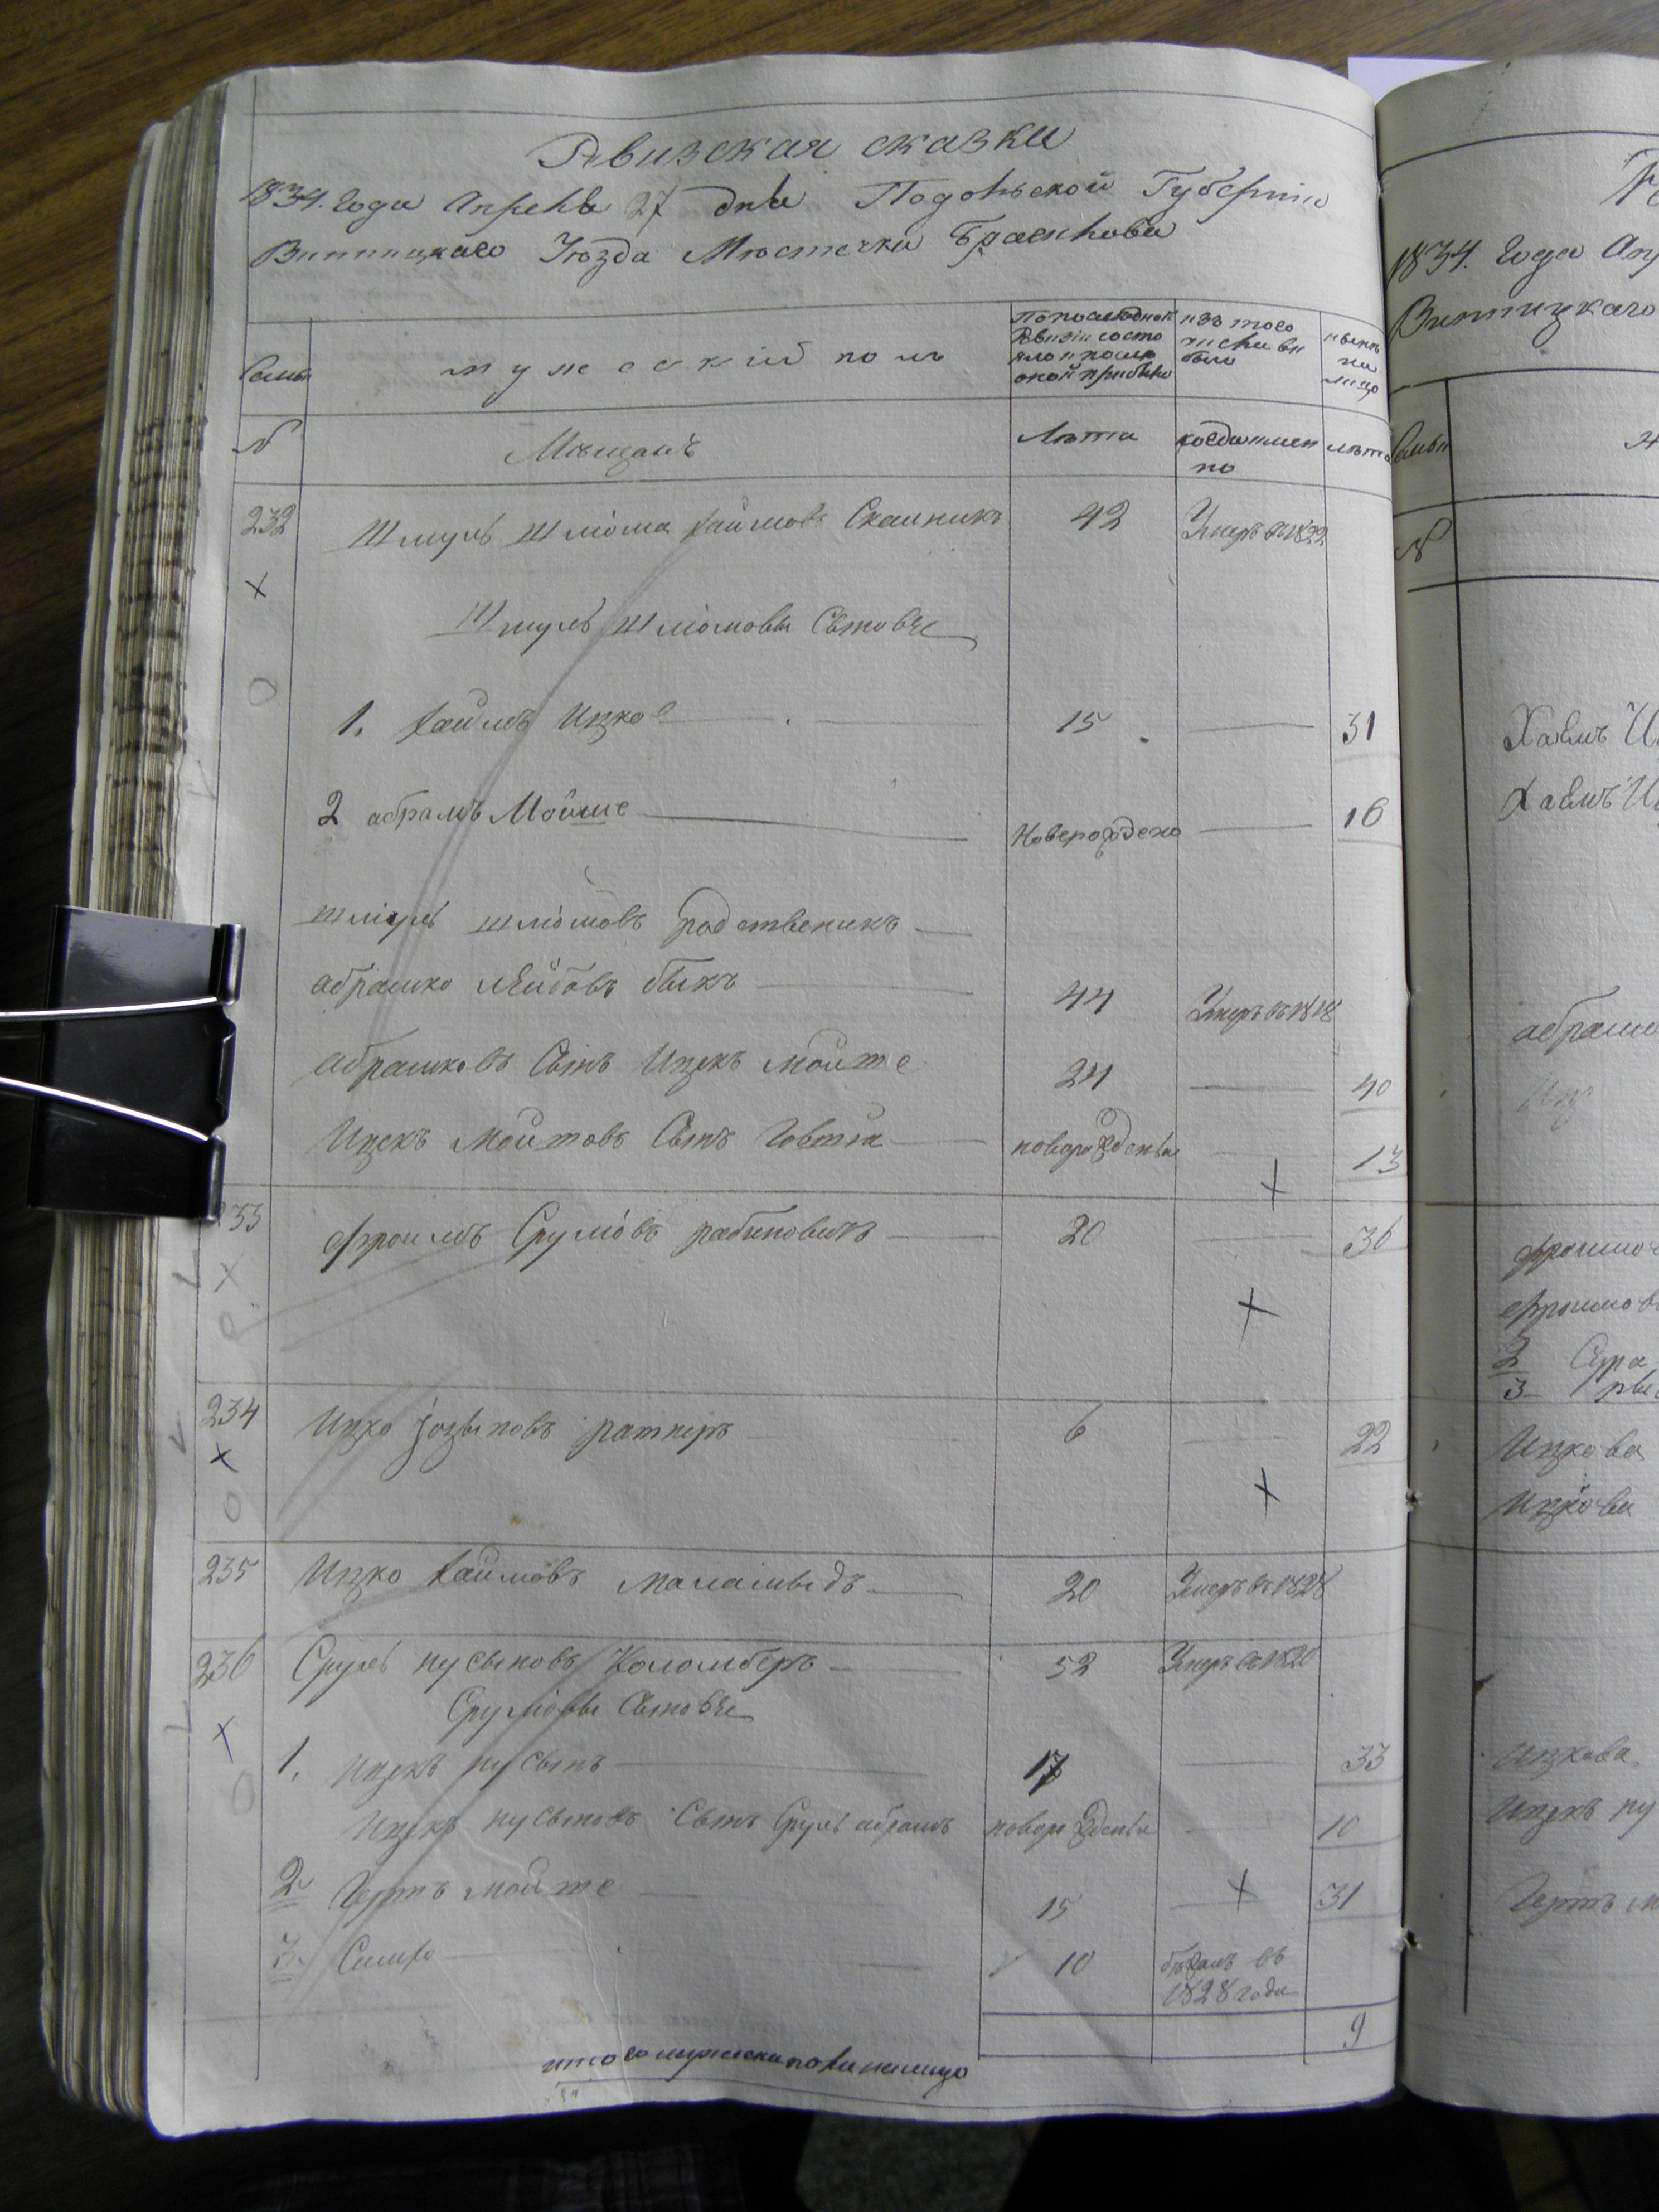 Ревизская сказка
1834. Года Апреля 27 дня Подольской Губернiи
Винницкаго Уѣзда Мѣстечка Браилова
Семьи
мужескiй полъ
По последной Ревизiи состояло и после оной прибыло
изъ того числа выбыло
ныне на лицо
№
Мещанъ
Лѣта
когда именно
лѣта
232
Шмуль Шлiома Хаймовъ Скаликъ
42
Умеръ въ 1822
Шмуль Шлiомовы Сыновье
1. Хаимъ Ицко
15
31
2 абрамъ Мойше
Новорожденo
16
шмуль шлiомовъ родственикъ
абрашко лейбовъ быкъ
44
Умеръ въ 1818
абрашковъ Сынъ Ицекъ мойше
24
40
Ицекъ мойшовъ Сынъ
новорожденъ
13
233
Фроимъ Срулiовъ рабиновичъ
20
36
234
Ицко iосыповъ ратнеръ
6
22
235
Ицко Хаимовъ маламыдъ
20
Умеръ въ 1828
236
Сруль нусыновъ Коломберъ
52
Умеръ въ 1820
Срулiовы Сыновье
1. Ицекъ нусынъ
17
33
Ицекъ нусыновъ Сынъ Сруль абрамъ
новорожденъ
10
2 Гершъ мойше
15
31
3.
10
бежалъ въ 1828 годе
9
итого мужеска пола налицо
1834. Года Апр
Винницкаго
№
Хаимъ И
Хаимъ Иц
абрашко
фроимов
фроимов
2 Сура
3
Ицкова
Ицкова
Ицкова
Ицекъ ну
Гершъ м